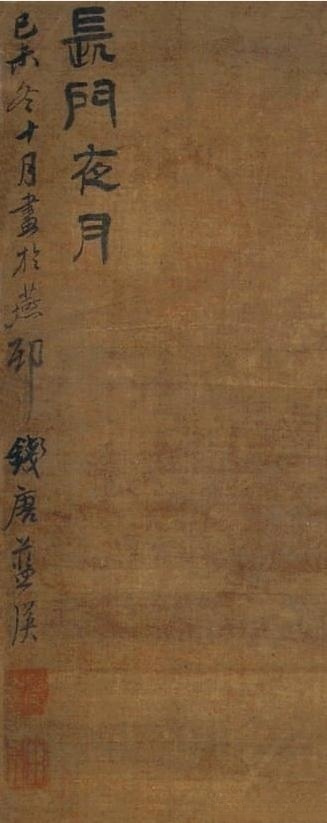 長門夜月
己未冬十月畫於燕邸　錢唐藍瑛